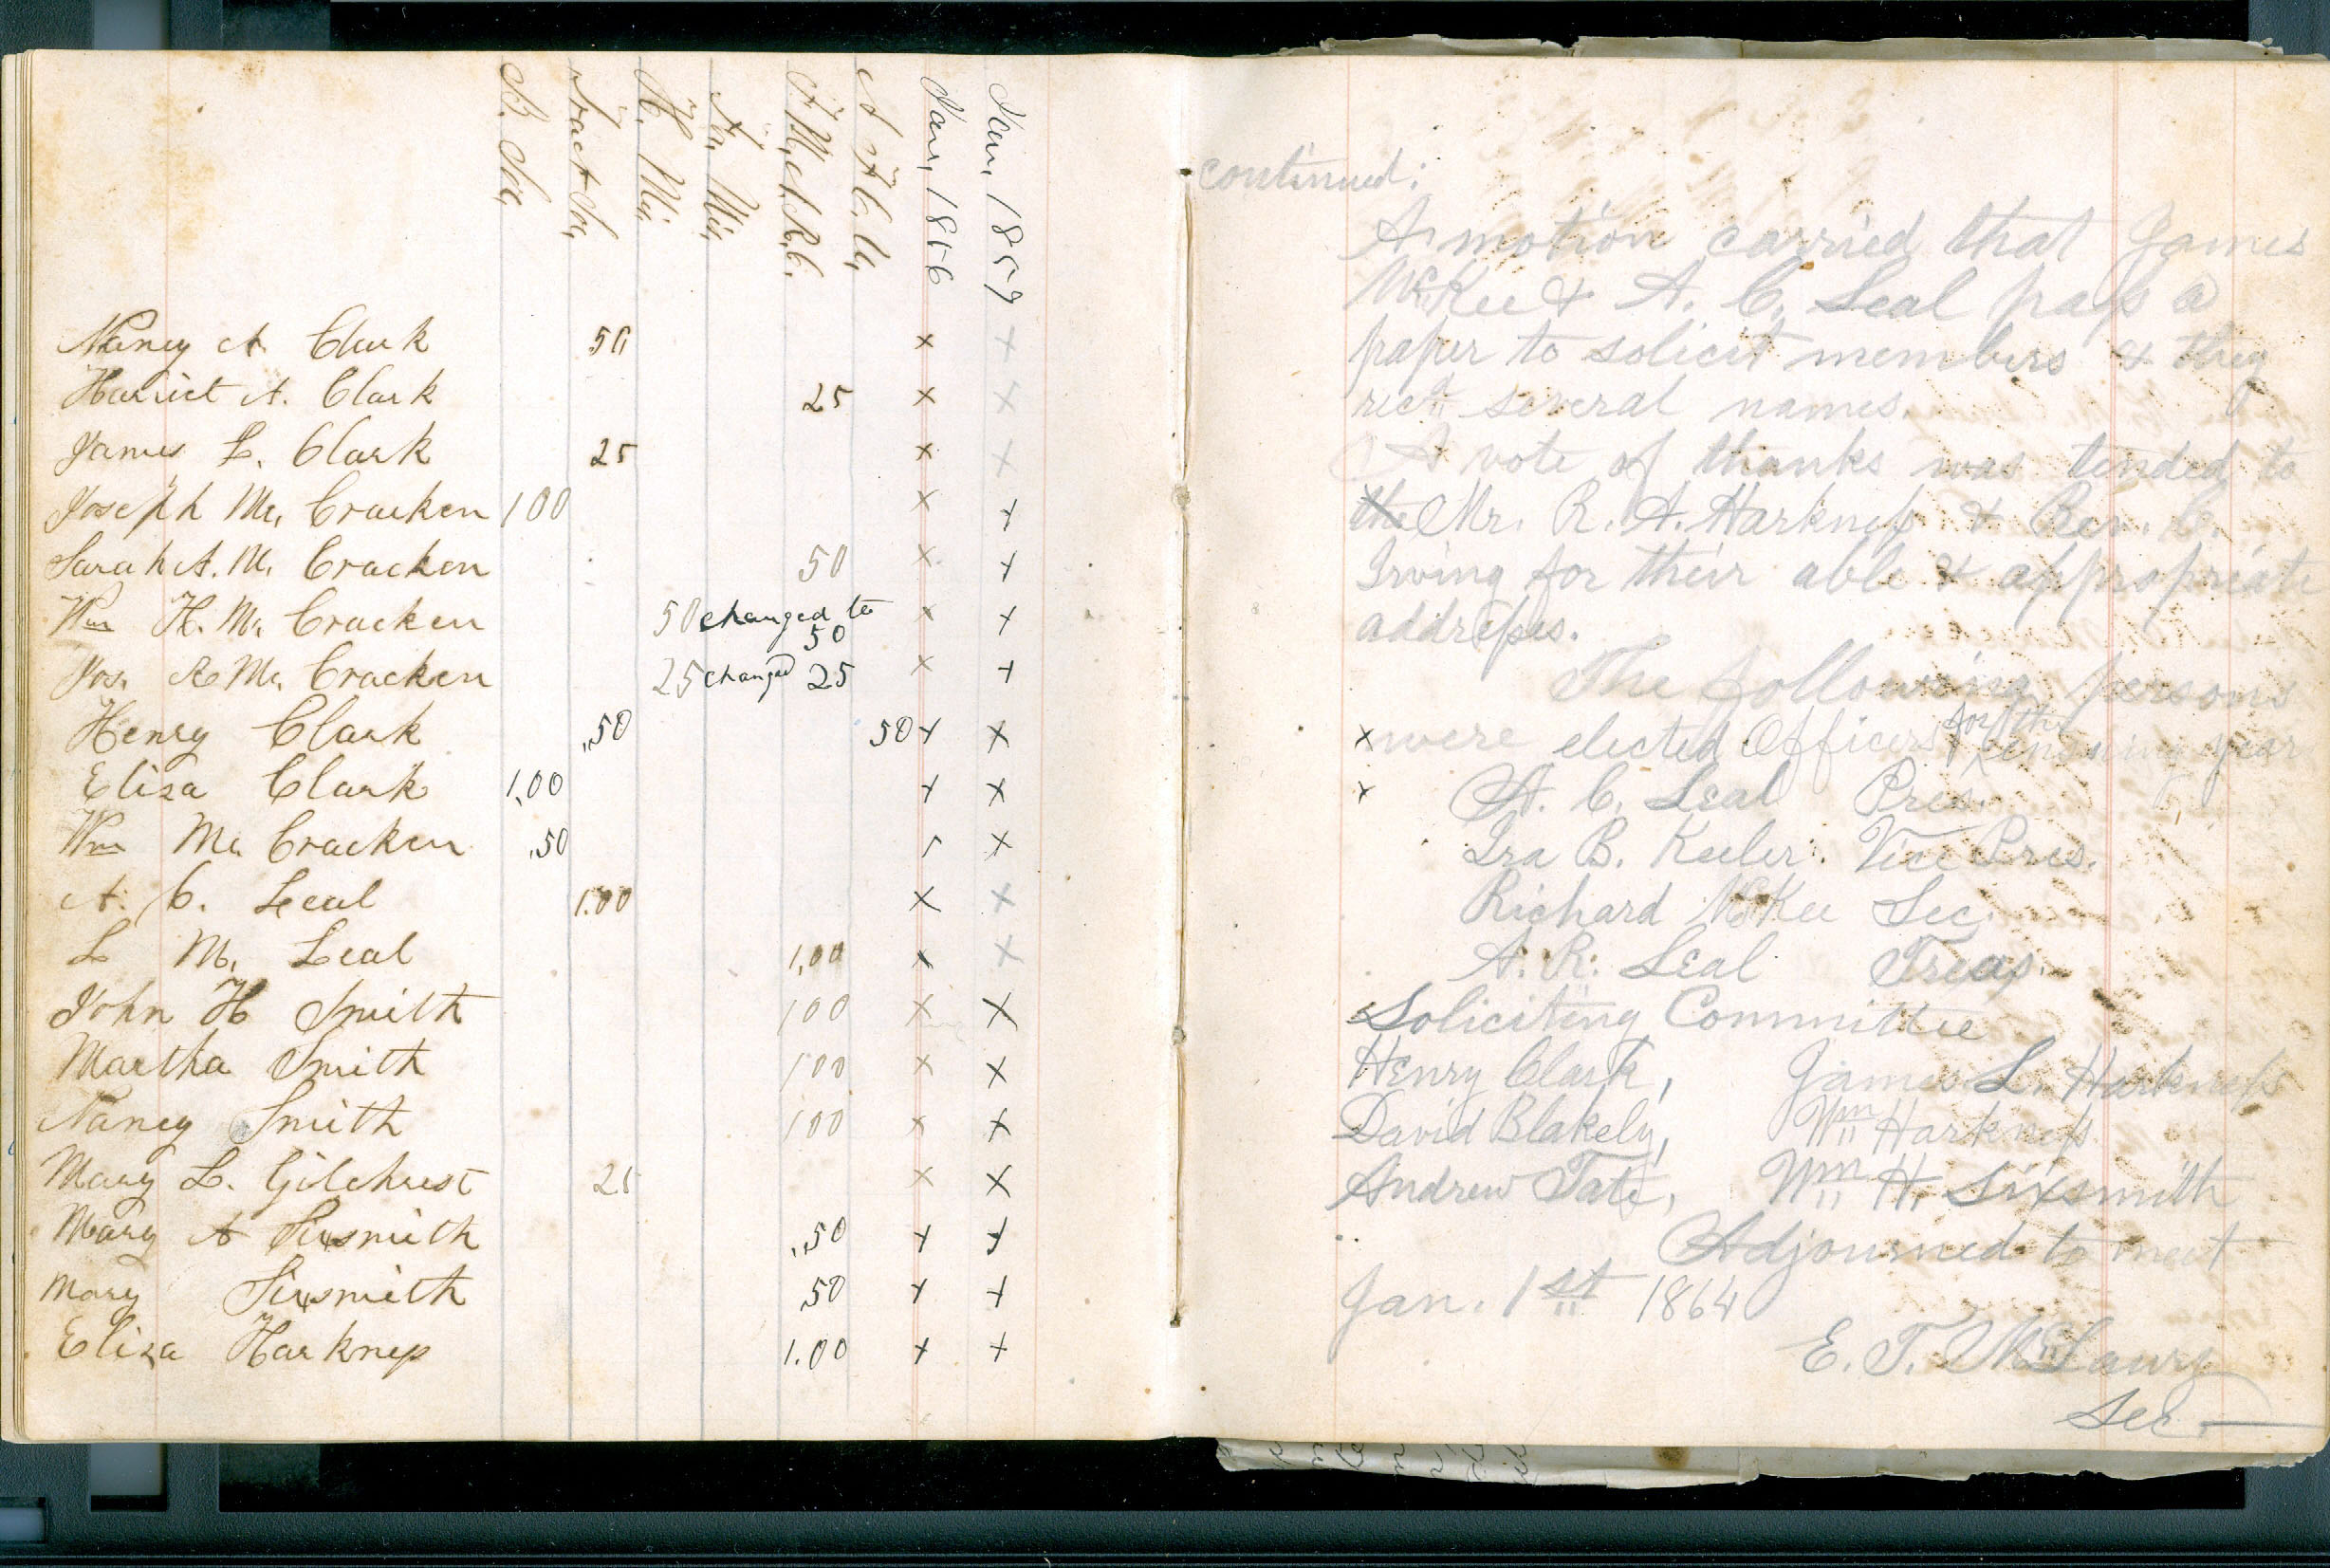 B. So.
Tract So.
H. Mis.
Fn. Mis.
A. & F. C. U.
Jan, 1856
Jan, 1857
Nancy A Clark 50 x x
Harriet A. Clark 25 x x
James L. Clark 25 x x
Joseph Mc, Cracken 100 x x
Sarah A. Mc Cracken 50 x x
Wm H. Mc Cracken 50 changed to 50 x x
Jos. R Mc, Cracken 25 changed 25 x x
Henry Clark ,50 50 x x
Eliza Clark 1,00 x x
Wm Mc Cracken ,50 x
A. C. Leal 1.00 x x
L M, Leal 1,00 x x
John H Smith 100 x x
Martha Smith 100 x x
Nancy Smith 100 x x
Mary L. Gilchrest 25 x x
Mary A Sixsmith ,50 x x
Mary Sixsmith ,50 x x
Eliza Harkness 1.00 x x
continued:
A motion carried that James
McKee & A. C. Leal pass a
paper to solicit members & they
recd several names.
A vote of thanks was tended to
the Mr. R. A. Harkness & Rev. C.
Irving for their able & appropriate
addresses.
The following persons
x were elected Officers for the ensuing year
x A. C. Leal Pres.
Ira B. Keeler. Vice Pres.
Richard McKee Sec.
A. R. Leal Treas.
Soliciting Committee
Henry Clark, James L. Harkness
David Blakely, Wm Harkness
Andrew Tate, Wm H. Sixsmith
Adjourned to meet
Jan. 1st 1864
E. T. McLaury
Sec.